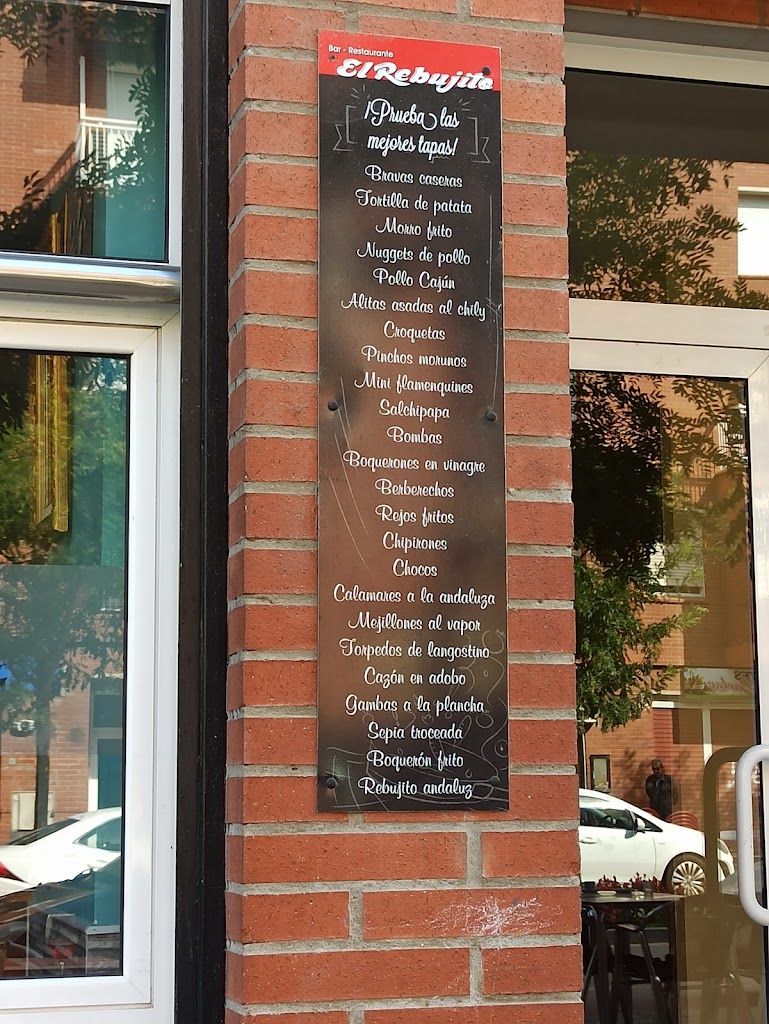 Bar - Restaurante
El Rebujito
¡Prueba las
mejores tapas!
Bravas caseras
Tortilla de patata
Morro frito
Nuggets de pollo
Pollo Cajún
Alitas asadas al chily
Croquetas
Pinchos morunos
Mini flamenquines
Salchipapa
Bombas
Boquerones en vinagre
Berberechos
Rejos fritos
Chipirones
Chocos
Calamares a la andaluza
Mejillones al vapor
Torpedos de langostino
Cazón en adobo
Gambas a la plancha
Sepia troceada
Boquerón frito
Rebujito andaluz